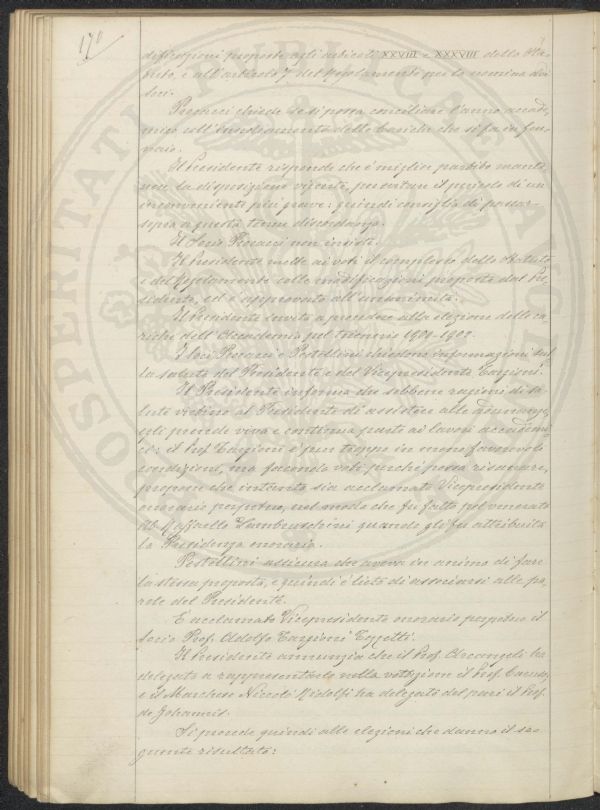 170
dificazioni proposte agli articoli XXVIII e XXXVIII dello Sta-
tuto, e all'articolo 7 del Regolamento per la nomina dei
soci.
Pecori chiede se si possa conciliare l'anno accade-
mico coll'insediamento delle cariche che si fa in gen-
naio.
Il Presidente risponde che è miglior partito mante-
nere la disposizione vigente, per evitare il pericolo di un
inconveniente più grave: quindi consiglia di passar
sopra a questa tenue discordanza.
Il Socio non insiste.
Il Presidente mette ai voti il complesso dello Statuto
e del Regolamento colle modificazioni proposte dal Pre-
sidente, ed è approvato all'unanimità.
Il Presidente invita a procedere alla elezione delle ca-
riche dell'Accademia pel triennio 1900-1902.
I soci e Pestellini chiedono informazioni sul-
la salute del Presidente e del Vicepresidente Targioni.
Il Presidente informa che sebbene ragioni di sa-
lute vietino al Presidente di assistere alle adunanze,
egli prende viva e continua parte ai lavori accademi-
ci: il Prof. Targioni è pur troppo in meno favorevoli
condizioni, ma facendo voti perchè possa risanare,
propone che intanto sia acclamato Vicepresidente
onorario perpetuo, nel modo che fu fatto pel venerato
Ab. Raffaello Lambruschini quando gli fu attribuita
la Presidenza onoraria.
Pestellini assicura che aveva in animo di fare
la stessa proposta, e quindi è lieto di associarsi alle pa-
role del Presidente.
È acclamato Vicepresidente onorario perpetuo il
Socio Prof. Adolfo Targioni Tozzetti.
Il Presidente annunzia che il Prof. Arcangeli ha
delegato a rappresentarlo nella votazione il Prof. Caruso,
e il Marchese Niccolò Ridolfi ha delegato del pari il Prof.
de Johannis.
Si procede quindi alle elezioni che danno il se-
guente risultato:
PROSPERITATI PUBLICAE